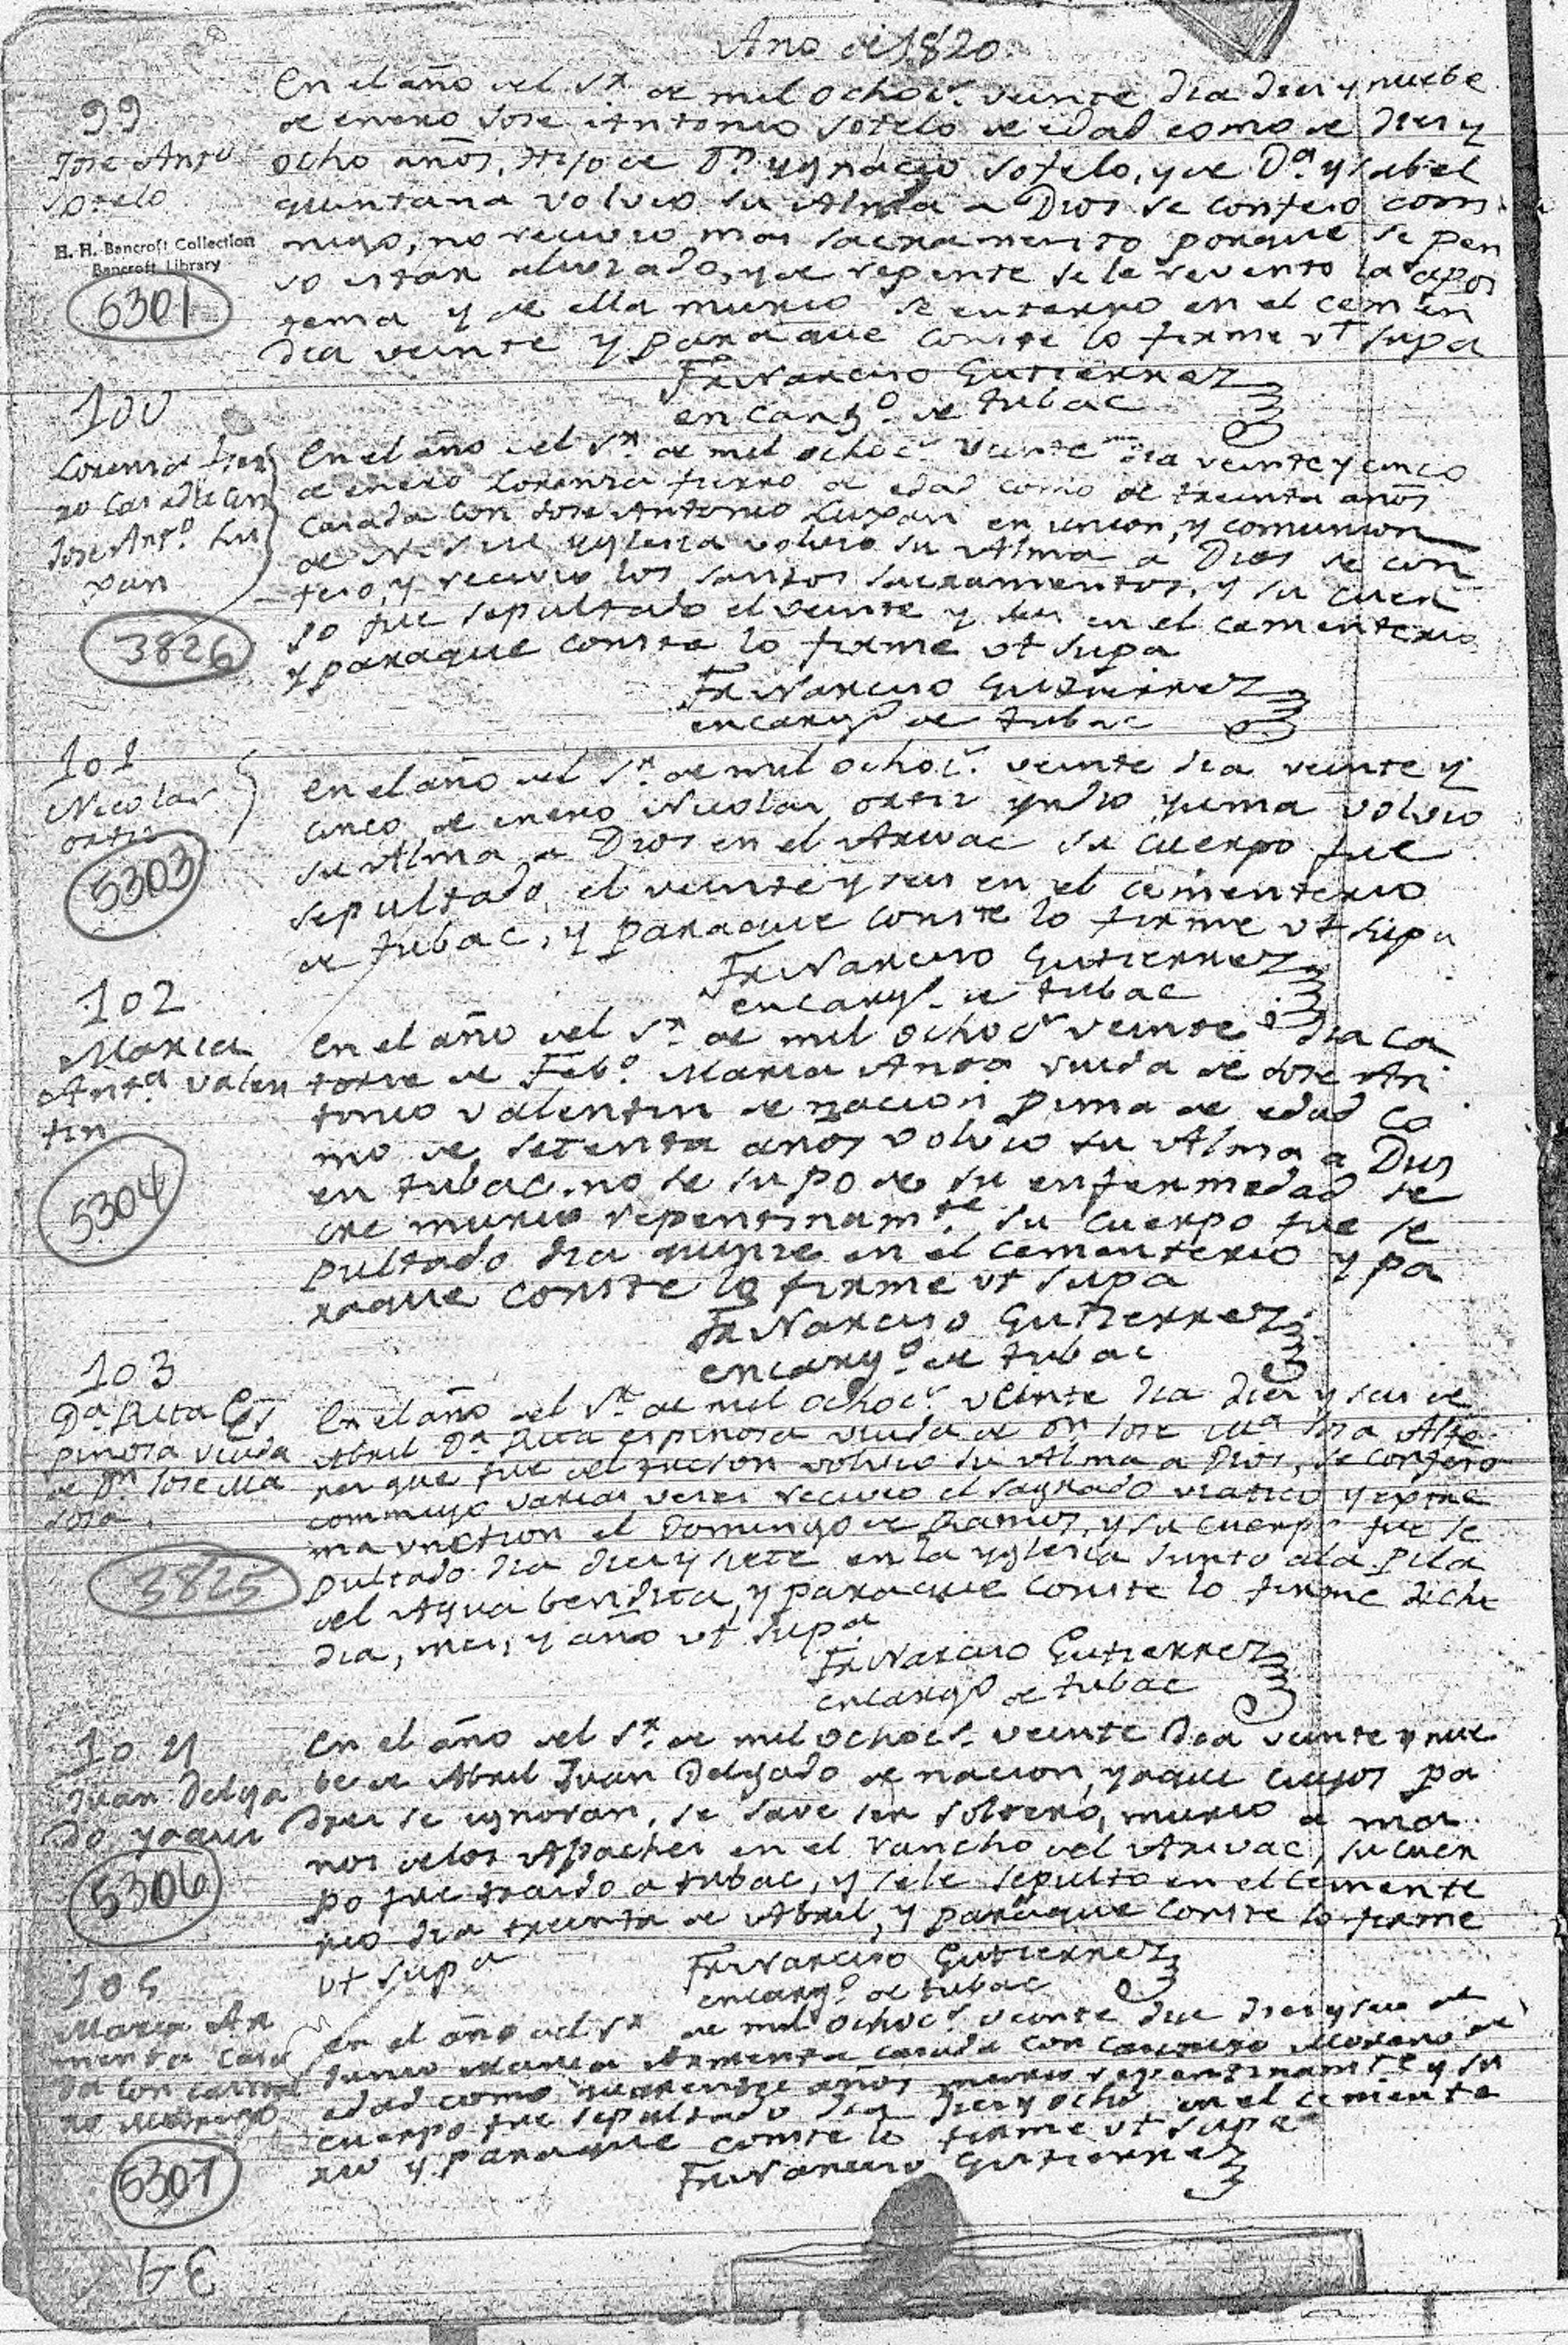 Año de 1820.
99
Jose Anto
Sotelo
H. H. Bancroft Collection
Bancroft Library
6301
En el año del Sr. de mil ochocs. veinte dia dies y nuebe
de enero Jose Antonio Sotelo de edad como de dies y
ocho años, Hijo de Dn. Ygnacio Sotelo, y de Da. Ysabel
quintana volvio su Alma a Dios se confeso com
migo, no recivio mas sacramento porque se pen
so estar alibiado, y de repente se le revento la apos
tema y de ella murio se enterro en el
dia veinte y paraque conste lo firme vt supa
Fr Narciso Gutierrez
encargo. de tubac
100
Lorensa Fier
ro casada con
Jose Anto. Lu
pan
3826
En el año del Sr. de mil ochocs. veinte dia veinte y cinco
de enero Lorensa fierro de edad como de treinta años
casada con Jose Antonio Lupan en union, y comunion
de N. S. M. Yglesia volvio su Alma a Dios se con
feso, y recivio los santos sacramentos, y su cuer
po fue sepultado el veinte y seis en el cementerio
y paraque conste lo firme vt supa
Fr Narciso Gutierrez
encargo de tubac
101
Nicolas
ortiz
5303
En el año del Sr. de mil ochocs. veinte dia veinte y
cinco de enero Nicolas ortiz yndio yuma volvio
su Alma a Dios en el Arivac su cuerpo fue
sepultado, el veinte y seis en el cementerio
de tubac, y paraque conste lo firme vt supa
Fr Narciso Gutierrez
encargo. de tubac
102
Maria
Anta. valen
tin
5304
En el año del Sr. de mil ochocs veinte dia ca
torse de Febo. Maria Anta viuda de Jose An
tonio valentin de nacion pima de edad co
mo de setenta años volvio su Alma a Dios
en tubac. no se supo de su enfermedad se
cre murio repentinamte. su cuerpo fue se
pultado dia quinse en el cementerio y pa
raque conste lo firme vt supa
Fr Narciso Gutierrez
encargo. de tubac
103
Da. Rita Es
pinosa viuda
de Dn Jose Ma
Sosa.
3825
En el año del Sr. de mil ochocs. veinte dia dies y seis de
Abril Da. Rita espinosa viuda de Dn Jose Ma Sosa Alfe
res que fue del tucson volvio su Alma a Dios, se confeso
commigo varias veses recivio el sagrado viatico y extre
ma vnction el Domingo de Ramos, y su cuerpo fue se
pultado dia dies y siete en la yglesia junto ala pila
del Agua bendita, y paraque conste lo firme dicho
dia, mes, y año vt supa
Fr Narciso Gutierrez
encargo de tubac
104
Juan Delga
do yaqui
5306
En el año del Sr. de mil ochocs. veinte dia veinte y nue
be de Abril Juan Delgado de nacion, yaqui cuyos pa
dres se ignoran, se save ser soltero, murio a ma
nos delos Apaches en el rancho del Arivac, su cuer
po fue traido a tubac, y sele sepulto en el cemente
rio dia treinta de Abril, y paraque conste lo firme
vt supa
Fr Narciso Gutierrez
encargo. de tubac
105
Maria Ar
menta casa
da con
no Moreno
5307
en el año del Sr de mil ochocs. veinte dia dies y seis de
Junio Maria Armenta casada con Moreno de
edad como años murio repentinamte y su
cuerpo fue sepultado dia dies y ocho en el cemente
rio y paraque conste lo firme vt supa
Fr Narciso Gutierrez
34